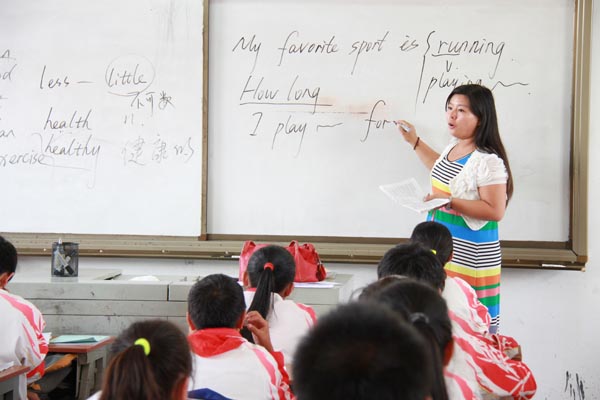 less — little
不可数
health
healthy 健康的
exercise
My favorite sport is { running.
v
playing ~
How long
I play ~ for